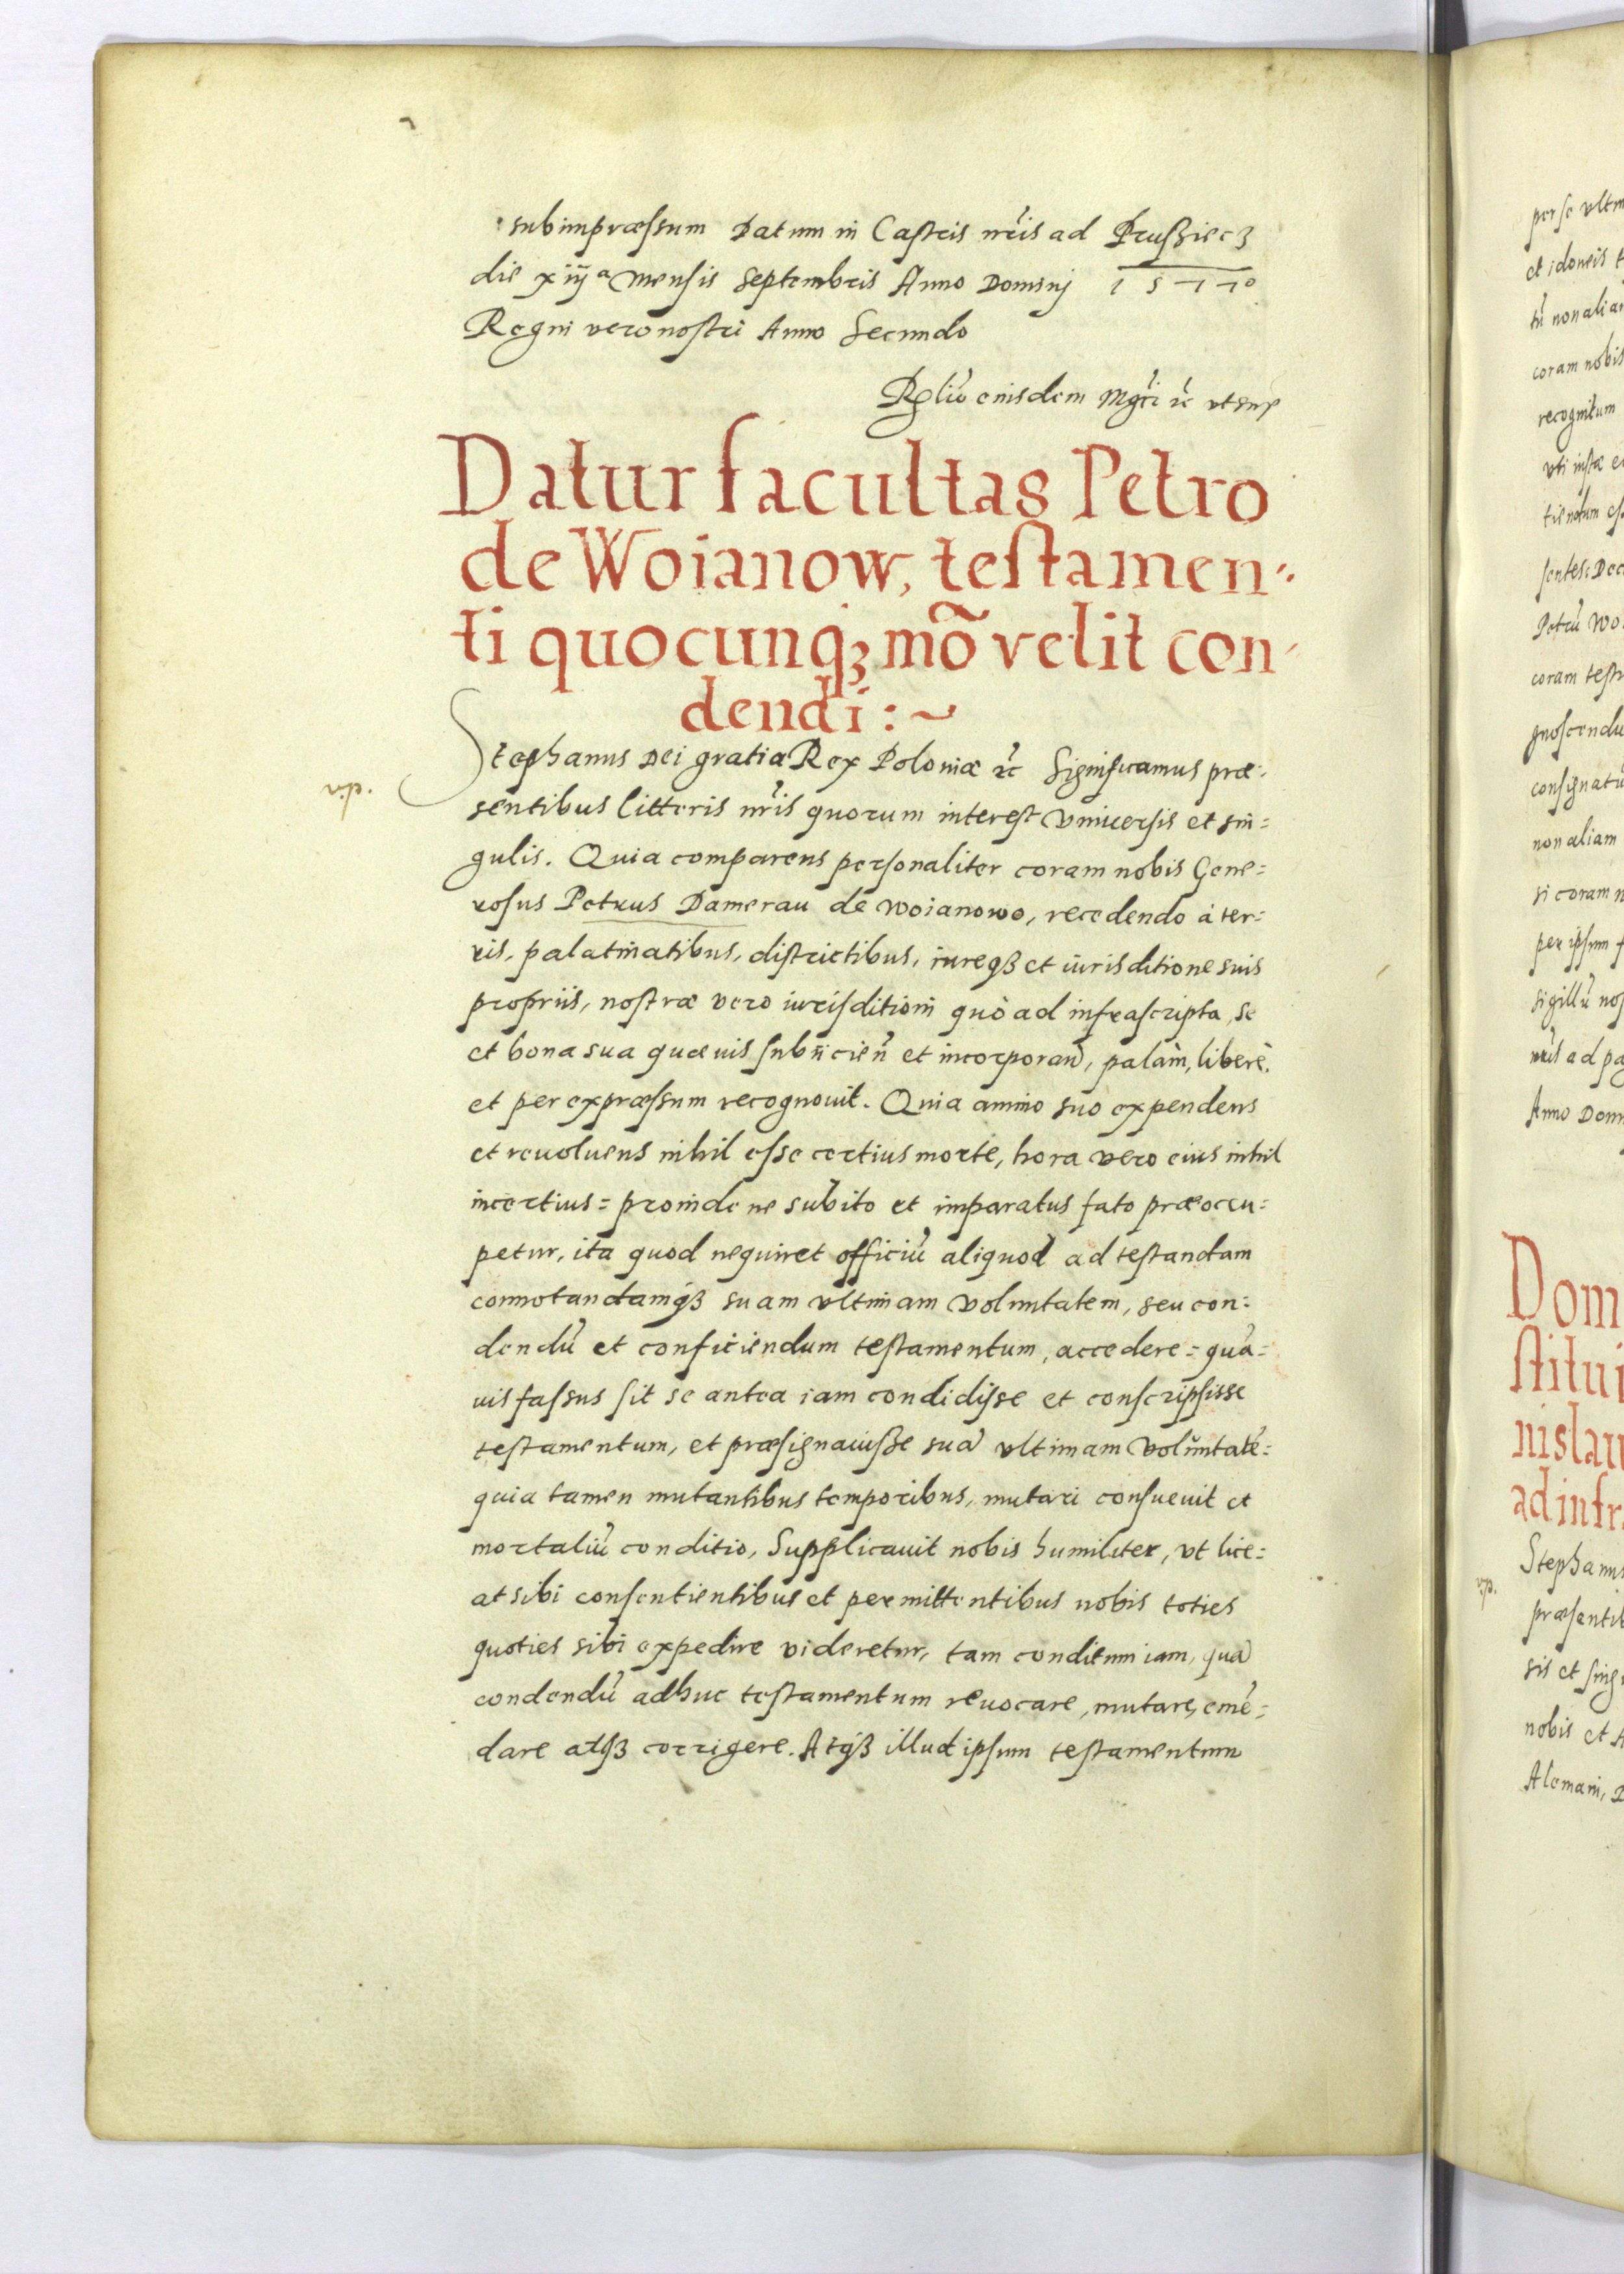 subimpræssum Datum in Castris nris ad Prussiecz
die xiijª Mensis Septembris Anno Dominj 1577º
Regni vero nostri Anno Secundo
Relio eiusdem Mgci &c vt sup
Datur facultas Petro
de Woianow, testamen-
ti quocunqȝ mõ velit con-
dendi :~
Stephanus Dei gratia Rex Poloniæ &c Significamus præ-
v.p.
sentibus litteris nris quorum interest vniuersis et sin=
gulis. Quia comparens personaliter coram nobis Gene=
rosus Petrus Damerau de Woianowo, recedendo à ter=
ris, palatinatibus, districtibus, iureqȝ et iurisditione suis
proprijs, nostræ vero iurisditioni quò ad infrascripta, se
et bona sua quæuis subijcien̄ et incorporan̄, palàm, liberè,
et per expræssum recognouit. Quia animo suo expendens
et reuoluens nihil esse certius morte, hora vero eius nihil
incertius= proinde ne subito et imparatus fato præoccu=
petur, ita quod nequiret officiū aliquod ad testandam
connotandamqȝ suam vltimam voluntatem, seu con=
dendū et conficiendum testamentum, accedere= quā=
uis fassus sit se antea iam condidisse et conscripsisse
testamentum, et præsignauisse suā vltimam voluntatē=
quia tamen mutantibus temporibus, mutari consueuit et
mortaliū conditio, Supplicauit nobis humiliter, vt lice=
at sibi consentientibus et permittentibus nobis toties
quoties sibi expedire videretur, tam conditum iam, quā
condendū adhuc testamentum reuocare, mutare, emē=
dare atqȝ corrigere. Atqȝ illud ipsum testamentum
per se vltm
et idoneis t
coram nobis
recognitum
coram test
consignatū
non aliam
si coram n
per ipsum f
sigillū nos
nris ad pa
Anno Dom
Dom
stitui
nislau
ad infra
Stephanus
v.p.
præsentib
sis et sing
nobis et
Alemani,